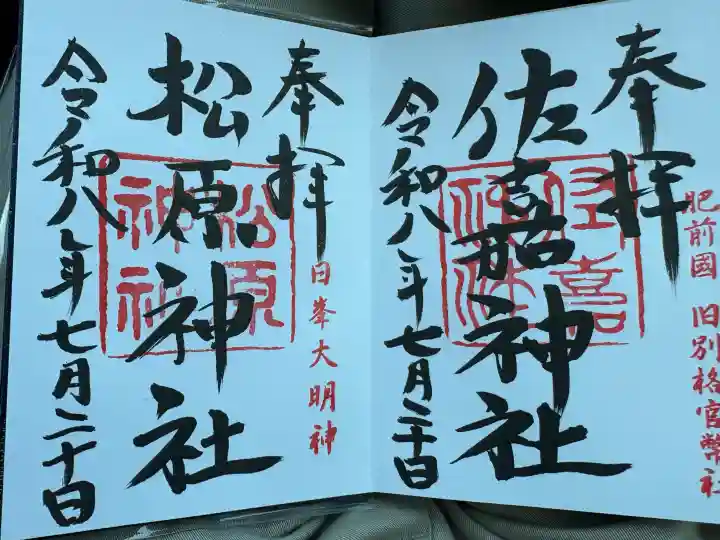 奉拝
肥前國 旧別格官幣社
佐嘉神社
佐嘉神社
令和八年七月二十日
奉拝
日峯大明神
松原神社
松原神社
令和八年七月二十日